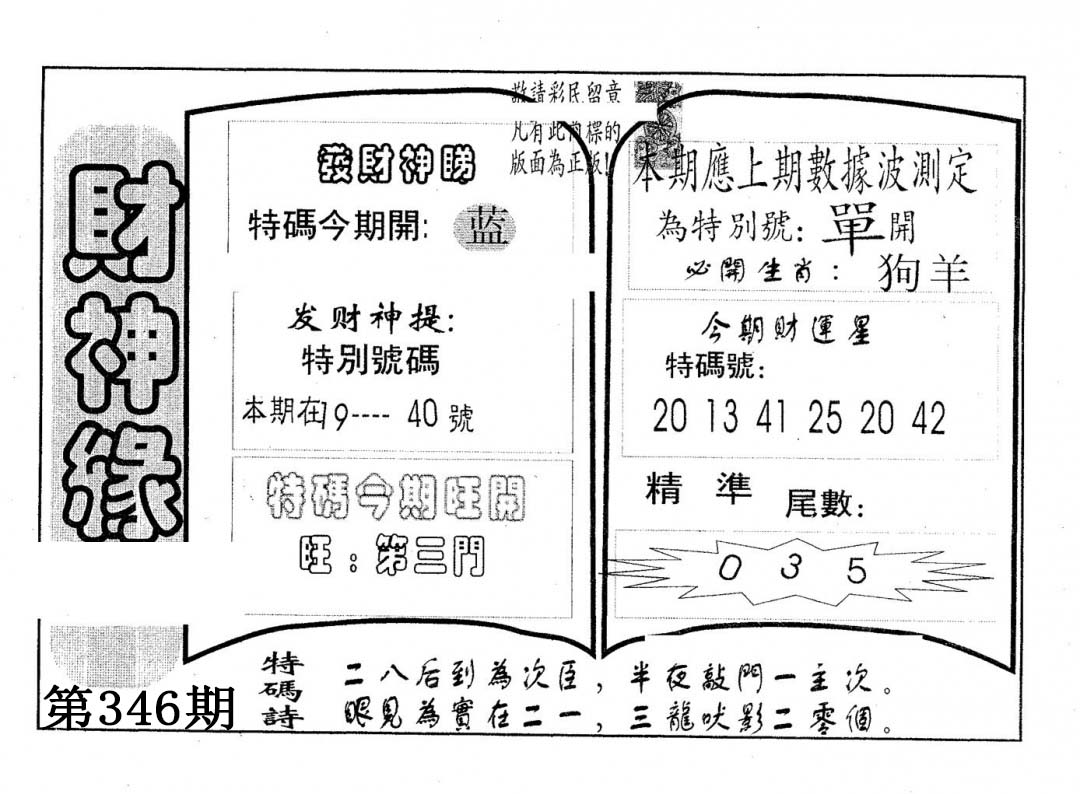 財神緣
第346期
敬請彩民留意
凡有此商標的
版面為正版!
發財神睇
特碼今期開: 蓝
发财神提:
特別號碼
本期在19---- 40號
特碼今期旺開
旺:第三門
本期應上期數據波測定
為特別號: 單開
必開生肖: 狗羊
今期財運星
特碼號:
20 13 41 25 20 42
精準 尾數:
0 3 5
特碼詩
二八后到為次臣,半夜敲門一主次。
眼見為實在二一,三龍吠影二零個。